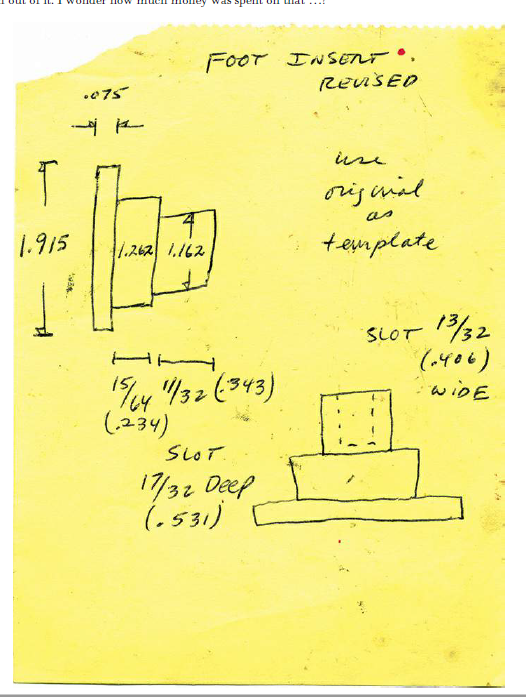 out of it. I wonder how much money was spent on that ...?
FOOT INSERT.
REVISED
.075
use
original
as
template
1.915
1.262
1.162
SLOT 13/32
(.406)
WIDE
15/64 11/32 (.343)
(.234)
SLOT
17/32 DEEP
(.531)